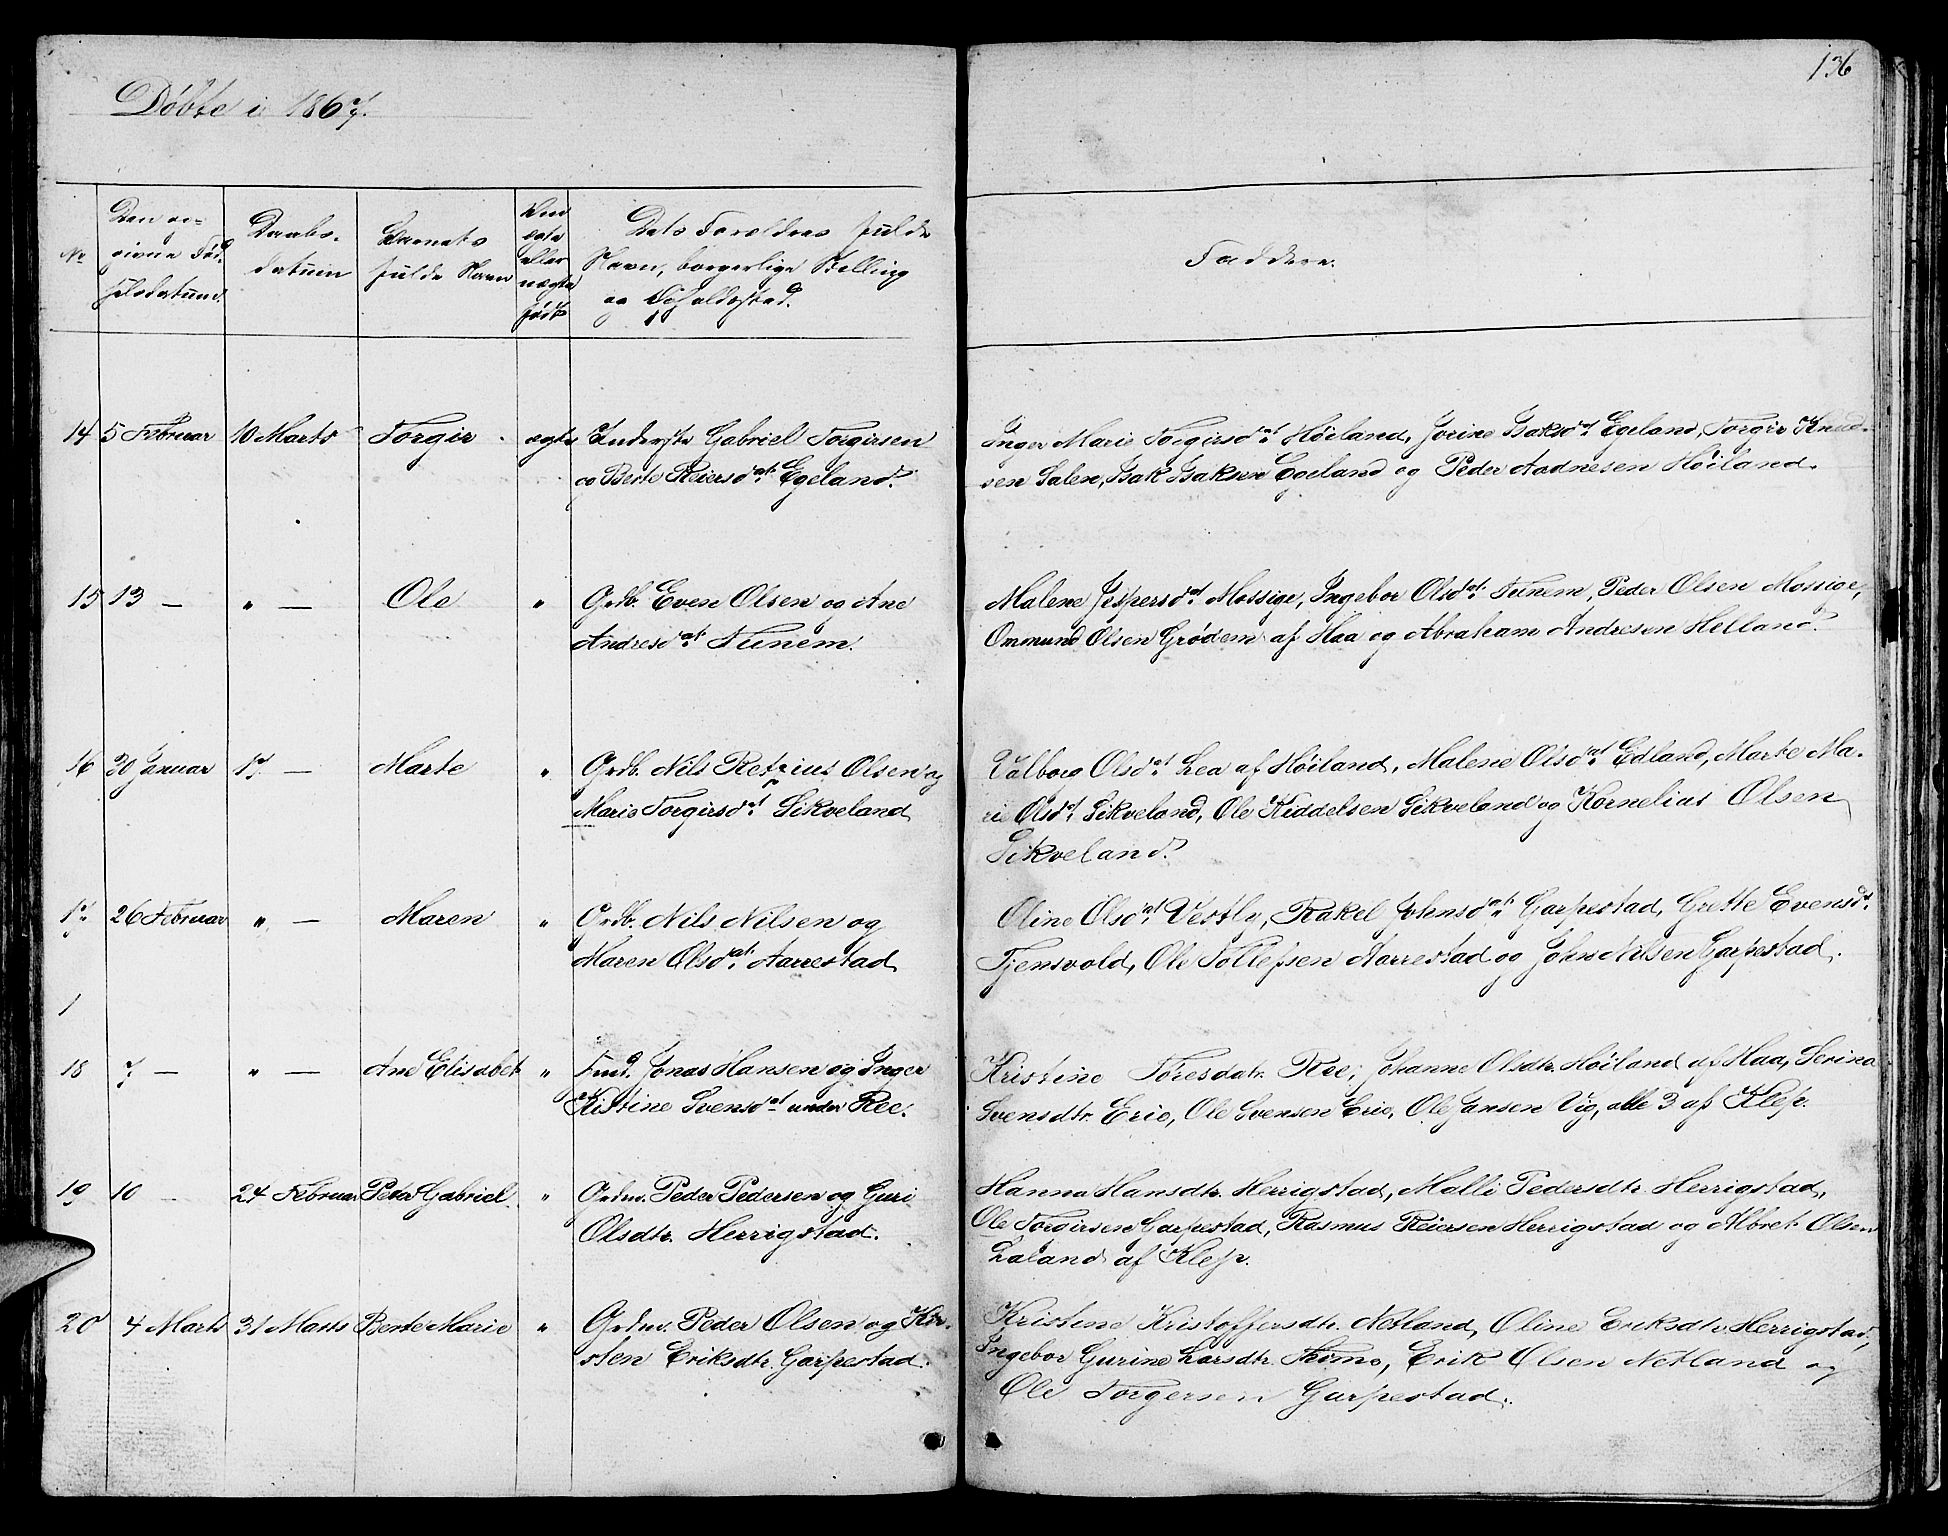 136
Døbte i 1867.
No
Den op-
givne Fød-
selsdatum.
Daabs-
datum
Barnets
fulde Navn
Om
ægte
eller
uægte
født
Dets Forældres fulde
Navn, borgerlige Stilling
og Opholdssted.
Faddere.
14 5 Februar 10 Marts Torgir ægte Inderste Gabriel Torgirsen
og Berte Reiersdat. Egeland.
Inger Marie Torgirsdat. Høiland, Jorine Isaksdat. Egeland, Torgir Knud-
sen Salen, Isak Isaksen Egeland og Peder Aadnesen Høiland.
15 13 — " — Ole " Grdb. Even Olsen og Ane
Andresdat. Tunem.
Malene Jespersdat. Mossige, Ingebor Olsdat. Tunem, Peder Olsen Mossige,
Ommund Olsen Grødem af Haa og Abraham Andresen Helland.
16 30 Januar 17. — Marte " Grdb. Nils Retzius Olsen og
Marie Torgirsdat. Sikveland
Valborg Olsdat. Lea af Høiland, Malene Olsdat. Edland, Marte Ma-
rie Olsdat. Sikveland, Ole Kiddelsen Sikveland og Kornelius Olsen
Sikveland.
17 26 Februar " — Maren " Grdb. Nils Nilsen og
Maren Olsdat. Aarrestad
Oline Olsdat. Vestly, Rakel Johnsdat. Garpestad, Grette Evensdt.
Tjensvold, Ole Tollefsen Aarrestad og John Nilsen Garpestad.
1
18 7 — " — Ane Elisabet " Jonas Hansen og Inger
Kistine Svensdat. under Ree.
Kristine Toresdatr. Ree, Johanne Olsdtr. Høiland af Haa, Serina
Svensdtr. Erie, Ole Svensen Erie, Ole Jansen Vig, alle 3 af Klep.
19 10 — 24 Februar Peder Gabriel. " Grdm. Peder Pedersen og Guri
Olsdtr. Herrigstad.
Hanna Hansdtr. Herrigstad, Malli Pedersdtr. Herrigstad,
Ole Torgirsen Garpestad, Rasmus Reiersen Herrigstad og Albret Olsen
Laland af Klep.
20 4 Marts 31 Marts Berte Marie " Grdm. Peder Olsen og Kir-
sten Eriksdtr. Garpestad.
Kristine Kristoffersdtr. Netland, Oline Eriksdtr. Herrigstad,
Ingebor Gurine Larsdtr. Thime, Erik Olsen Netland og
Ole Torgersen Garpestad.